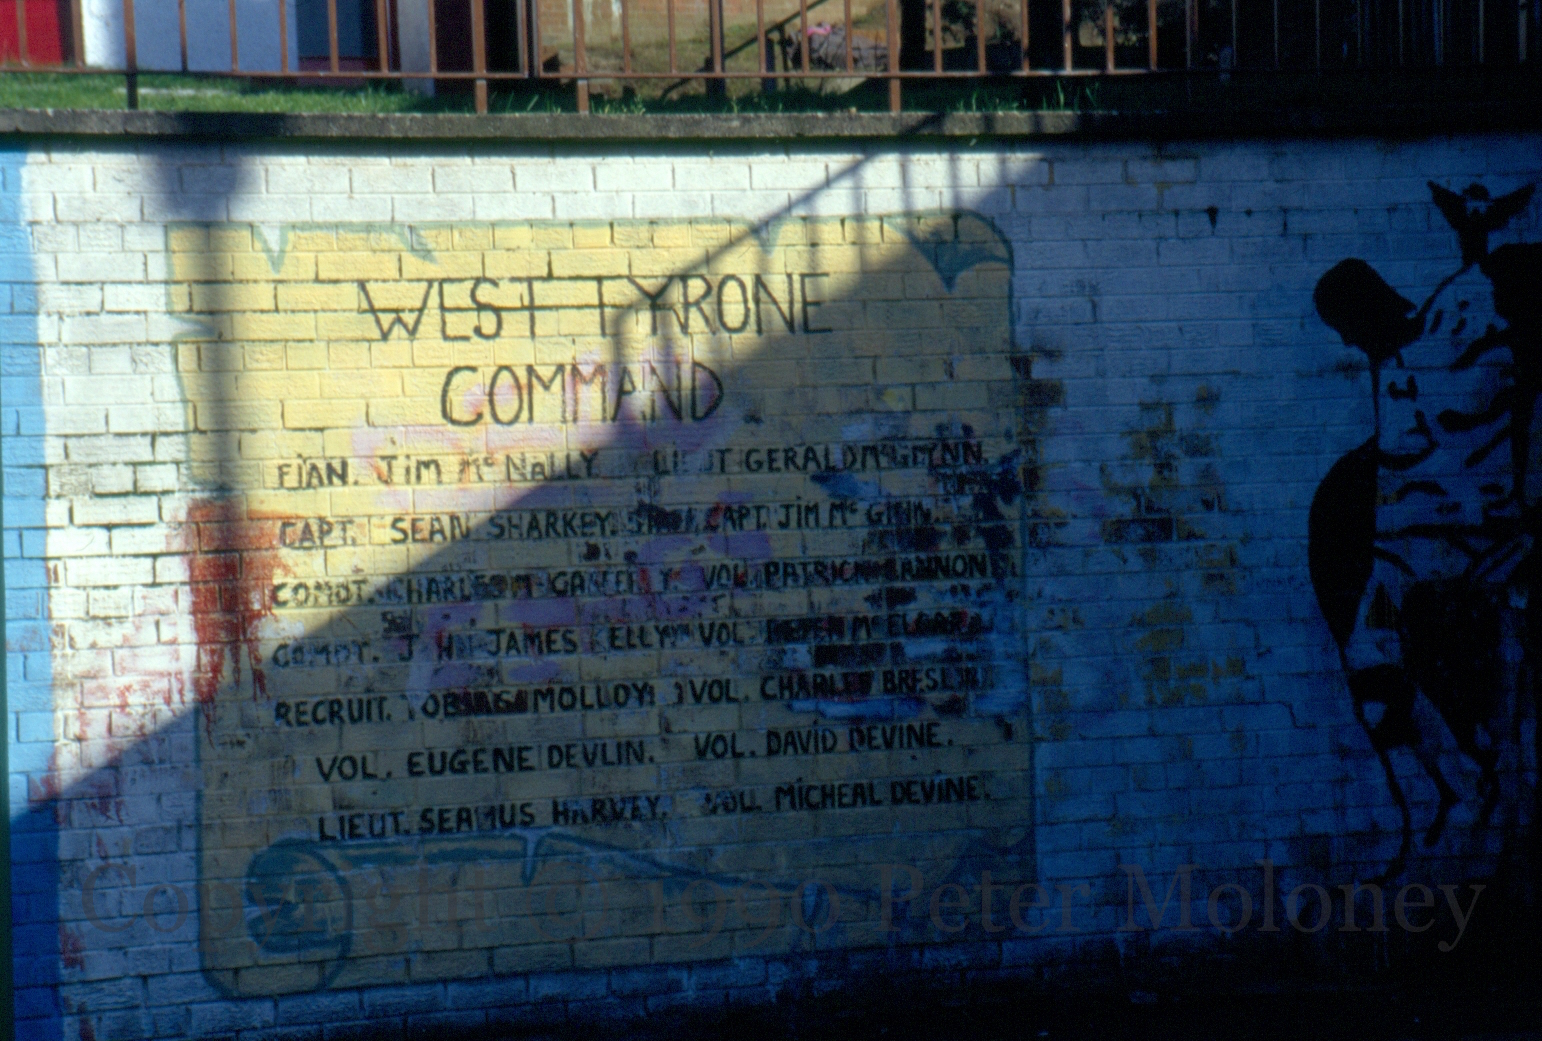 WEST TYRONE
COMMAND
FIAN. JIM McNALLY LIEUT GERALD McGLYNN.
CAPT. SEAN SHARKEY. CAPT. JIM McGINN.
COMDT. CHARLES VOL. PATRICK CANNON.
COMDT. JOHN JAMES KELLY VOL. McELDOA
RECRUIT. TOBIAS MOLLOY. VOL. CHARLES BRESLIN
VOL. EUGENE DEVLIN. VOL. DAVID DEVINE.
LIEUT. SEAMUS HARVEY. VOL. MICHEAL DEVINE.
Copyright 1990 Peter Moloney